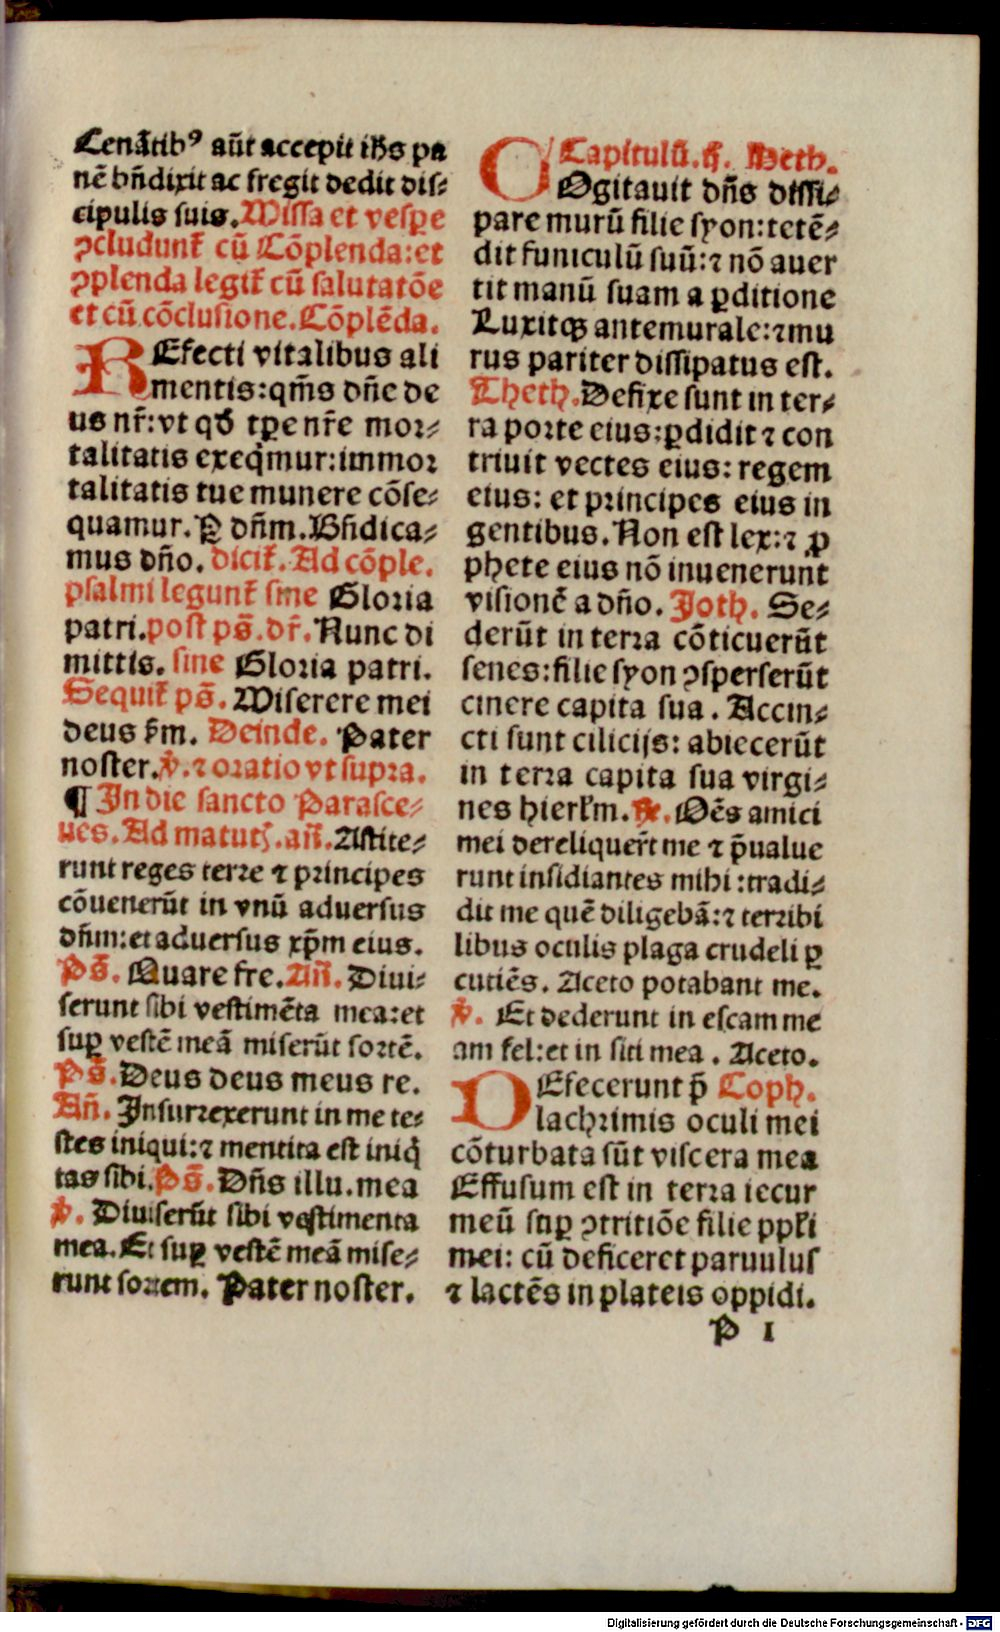 Cenātibꝰ aūt accepit ihs pa
nē bn̄dixit ac fregit dedit dis⸗
cipulis suis. Missa et vesꝑe
ꝯcludunt᷑ cū Cōplenda: et
ꝯplenda legit᷑ cū salutatōe
et cū cōclusione. Cōplēda.
REfecti vitalibus ali
mentis: qm̄s dn̄e de
us nr̄: vt qd̄ tꝑe nr̄e mor⸗
talitatis exeq̄mur: immor
talitatis tue munere cōse⸗
quamur. Ꝑ dn̄m. Bn̄dica⸗
mus dn̄o. dicit᷑. Ad cōple.
psalmi legunt᷑ sine Gloria
patri. post ps̄. dr̄. Nunc di
mittis. sine Gloria patri.
Sequit᷑ ps̄. Miserere mei
deus sm̄. Deinde. Pater
noster. ꝟ. ⁊ oratio vt supra.
¶ In die sancto Parasce⸗
ues. Ad matuth. an̄. Astite⸗
runt reges terre ⁊ principes
cōuenerūt in vnū aduersus
dn̄m: et aduersus xp̄m eius.
Ps̄. Quare fre. An̄. Diui⸗
serunt sibi vestimēta mea: et
suꝑ vestē meā miserūt sortē.
Ps̄. Deus deus meus re.
An̄. Insurrexerunt in me te⸗
stes iniqui: ⁊ mentita est iniq̄
tas sibi. Ps̄. Dn̄s illu. mea
ꝟ. Diuiserūt sibi vestimenta
mea. Et suꝑ vestē meā mise⸗
runt sortem. Pater noster.
Capitulū. ij. Heth.
COgitauit dn̄s dissi⸗
pare murū filie syon: tetē⸗
dit funiculū suū: ⁊ nō auer
tit manū suam a ꝑditione
Luxitqꝫ antemurale: ⁊ mu
rus pariter dissipatus est.
Theth. Defixe sunt in ter⸗
ra porte eius: ꝑdidit ⁊ con
triuit vectes eius: regem
eius: et principes eius in
gentibus. Non est lex: ⁊ ꝓ
phete eius nō inuenerunt
visionē a dn̄o. Joth. Se⸗
derūt in terra cōticuerūt
senes: filie syon ꝯsperserūt
cinere capita sua. Accin⸗
cti sunt cilicijs: abiecerūt
in terra capita sua virgi⸗
nes hierłm. ℟. Oēs amici
mei dereliquer̄t me ⁊ p̄ualue
runt insidiantes mihi: tradi⸗
dit me quē diligebā: ⁊ terribi
libus oculis plaga crudeli ꝑ
cutiēs. Aceto potabant me.
ꝟ. Et dederunt in escam me
am fel: et in siti mea. Aceto.
DEfecerunt p̄ Coph.
lachrimis oculi mei
cōturbata sūt viscera mea
Effusum est in terra iecur
meū suꝑ ꝯtritiōe filie ppłi
mei: cū deficeret paruulus
⁊ lactēs in plateis oppidi.
P 1
Digitalisierung gefördert durch die Deutsche Forschungsgemeinschaft - DFG